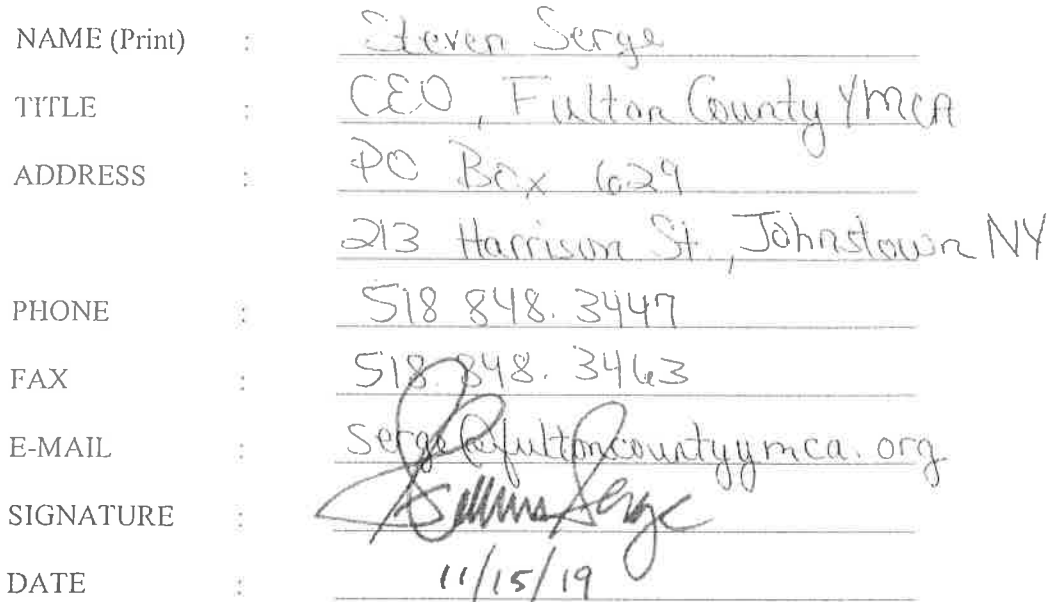 NAME (Print) : Steven Serge
TITLE : CEO, Fulton County YMCA
ADDRESS : PO Box 629
213 Harrison St., Johnstown NY
PHONE : 518 848. 3447
FAX : 518. 848. 3463
E-MAIL : serge@fultoncountyymca.org
SIGNATURE : Serge
DATE : 11/15/19